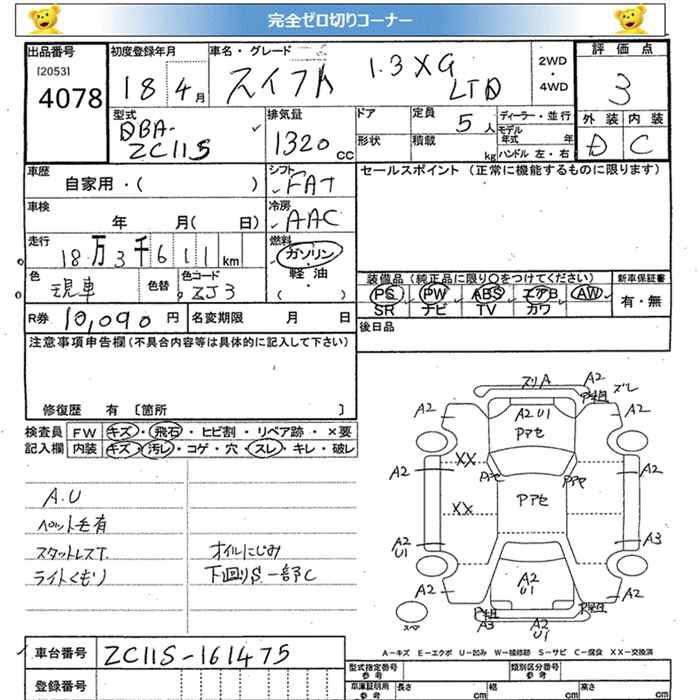 完全ゼロ切りコーナー
出品番号
[2053]
4078
初度登録年月
18 4月
車名・グレード
スイフト 1.3XG LTD
2WD
・
4WD
評価点
3
外装 内装
D C
型式
DBA-
ZC11S
排気量
1320 cc
ドア
定員
5人
ディーラー・並行
モデル年式 年
形状
積載
kg
ハンドル 左・右
車歴
自家用・( )
シフト
FAT
セールスポイント (正常に機能するものに限ります)
車検
年 月( 日)
冷房
AAC
走行
18万3千611km
燃料
ガソリン
軽油
( )
色
現車
色替
色コード
ZJ3
装備品 (純正品に限り○をつけてください)
新車保証書
PS PW ABS エアB AW
有・無
SR ナビ TV カワ
R券 10,090円
名変期限 月 日
後日品
注意事項申告欄(不具合内容等は具体的に記入して下さい)
修復歴 有 [箇所 ]
検査員 FW キズ・飛石・ヒビ割・リペア跡・×要
記入欄 内装 キズ・汚レ・コゲ・穴・スレ・キレ・破レ
A.U
ペット毛有
スタットレスT オイルにじみ
ライトくもり 下回りS 一部C
スリA A2 ズレ
A2 A2U1 P大 A2
Pアセ
XX
A2 Pアセ Pアセ A2
Pアセ
XX
A2 U1 A3
A2 A2 U1 A2
スペア
A3 A2 U1
A-キズ E-エクボ U-凹み W-補修跡 S-サビ C-腐食 XX-交換済
車台番号 ZC11S-161475
登録番号
型式指定番号
参考
類別区分番号
参考
車庫証明用
参考
長さ cm 幅 cm 高さ cm